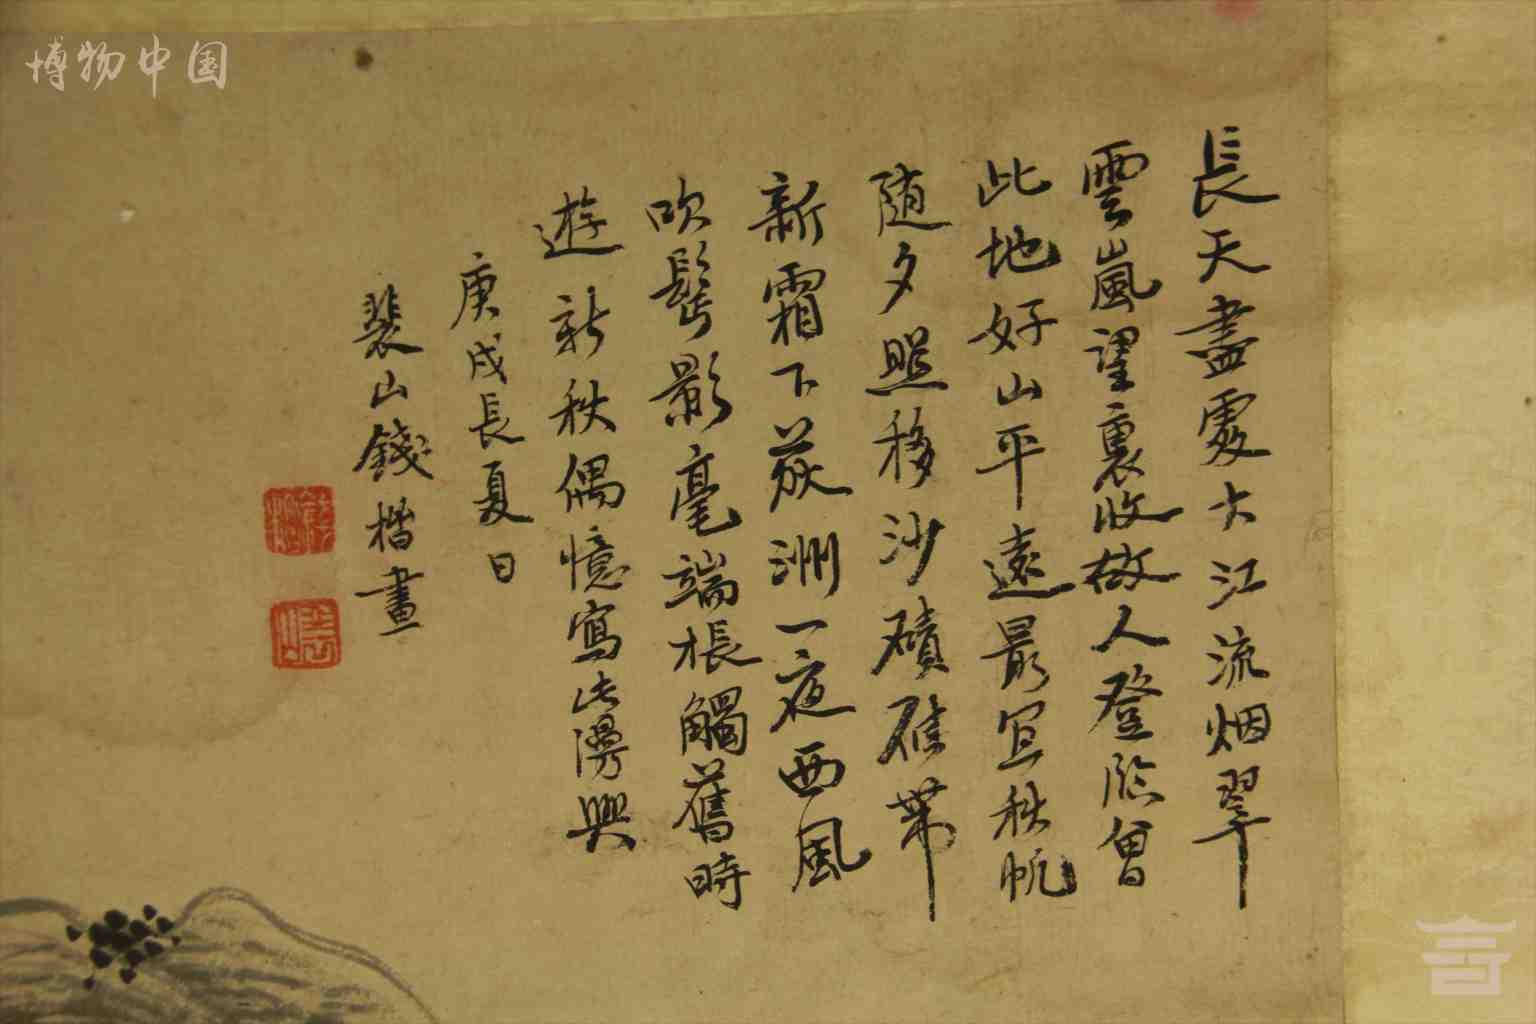 博物中国
長天盡處大江流烟翠
雲嵐望裏收故人登臨曾
此地好山平遠最宜秋帆
随夕照移沙磧雁帶
新霜下荻洲一夜西風
吹鬓影毫端棖觸舊時
遊新秋偶憶寫此漫興
庚戌長夏日
裴山錢楷畫